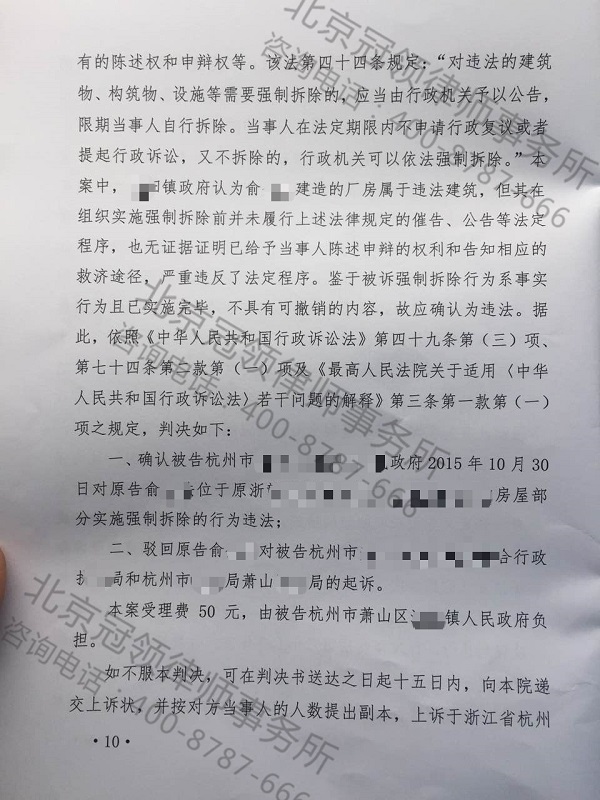 有的陈述权和申辩权等。该法第四十四条规定：“对违法的建筑
物、构筑物、设施等需要强制拆除的，应当由行政机关予以公告，
限期当事人自行拆除。当事人在法定期限内不申请行政复议或者
提起行政诉讼，又不拆除的，行政机关可以依法强制拆除。”本
案中，镇政府认为俞建造的厂房属于违法建筑，但其在
组织实施强制拆除前并未履行上述法律规定的催告、公告等法定
程序，也无证据证明已给予当事人陈述申辩的权利和告知相应的
救济途径，严重违反了法定程序。鉴于被诉强制拆除行为系事实
行为且已实施完毕，不具有可撤销的内容，故应确认为违法。据
此，依照《中华人民共和国行政诉讼法》第四十九条第（三）项、
第七十四条第二款第（一）项及《最高人民法院关于适用〈中华
人民共和国行政诉讼法〉若干问题的解释》第三条第一款第（一）
项之规定，判决如下：
一、确认被告杭州市政府2015年10月30
日对原告俞位于原浙房屋部
分实施强制拆除的行为违法；
二、驳回原告俞对被告杭州市合行政
局和杭州市局萧山局的起诉。
本案受理费 50 元，由被告杭州市萧山区镇人民政府负
担。
如不服本判决，可在判决书送达之日起十五日内，向本院递
交上诉状，并按对方当事人的人数提出副本，上诉于浙江省杭州
·10·
北京冠领律师事务所
咨询电话：400-8787-666
北京冠领律师事务所
咨询电话：400-8787-666
北京冠领律师事务所
咨询电话：400-8787-666